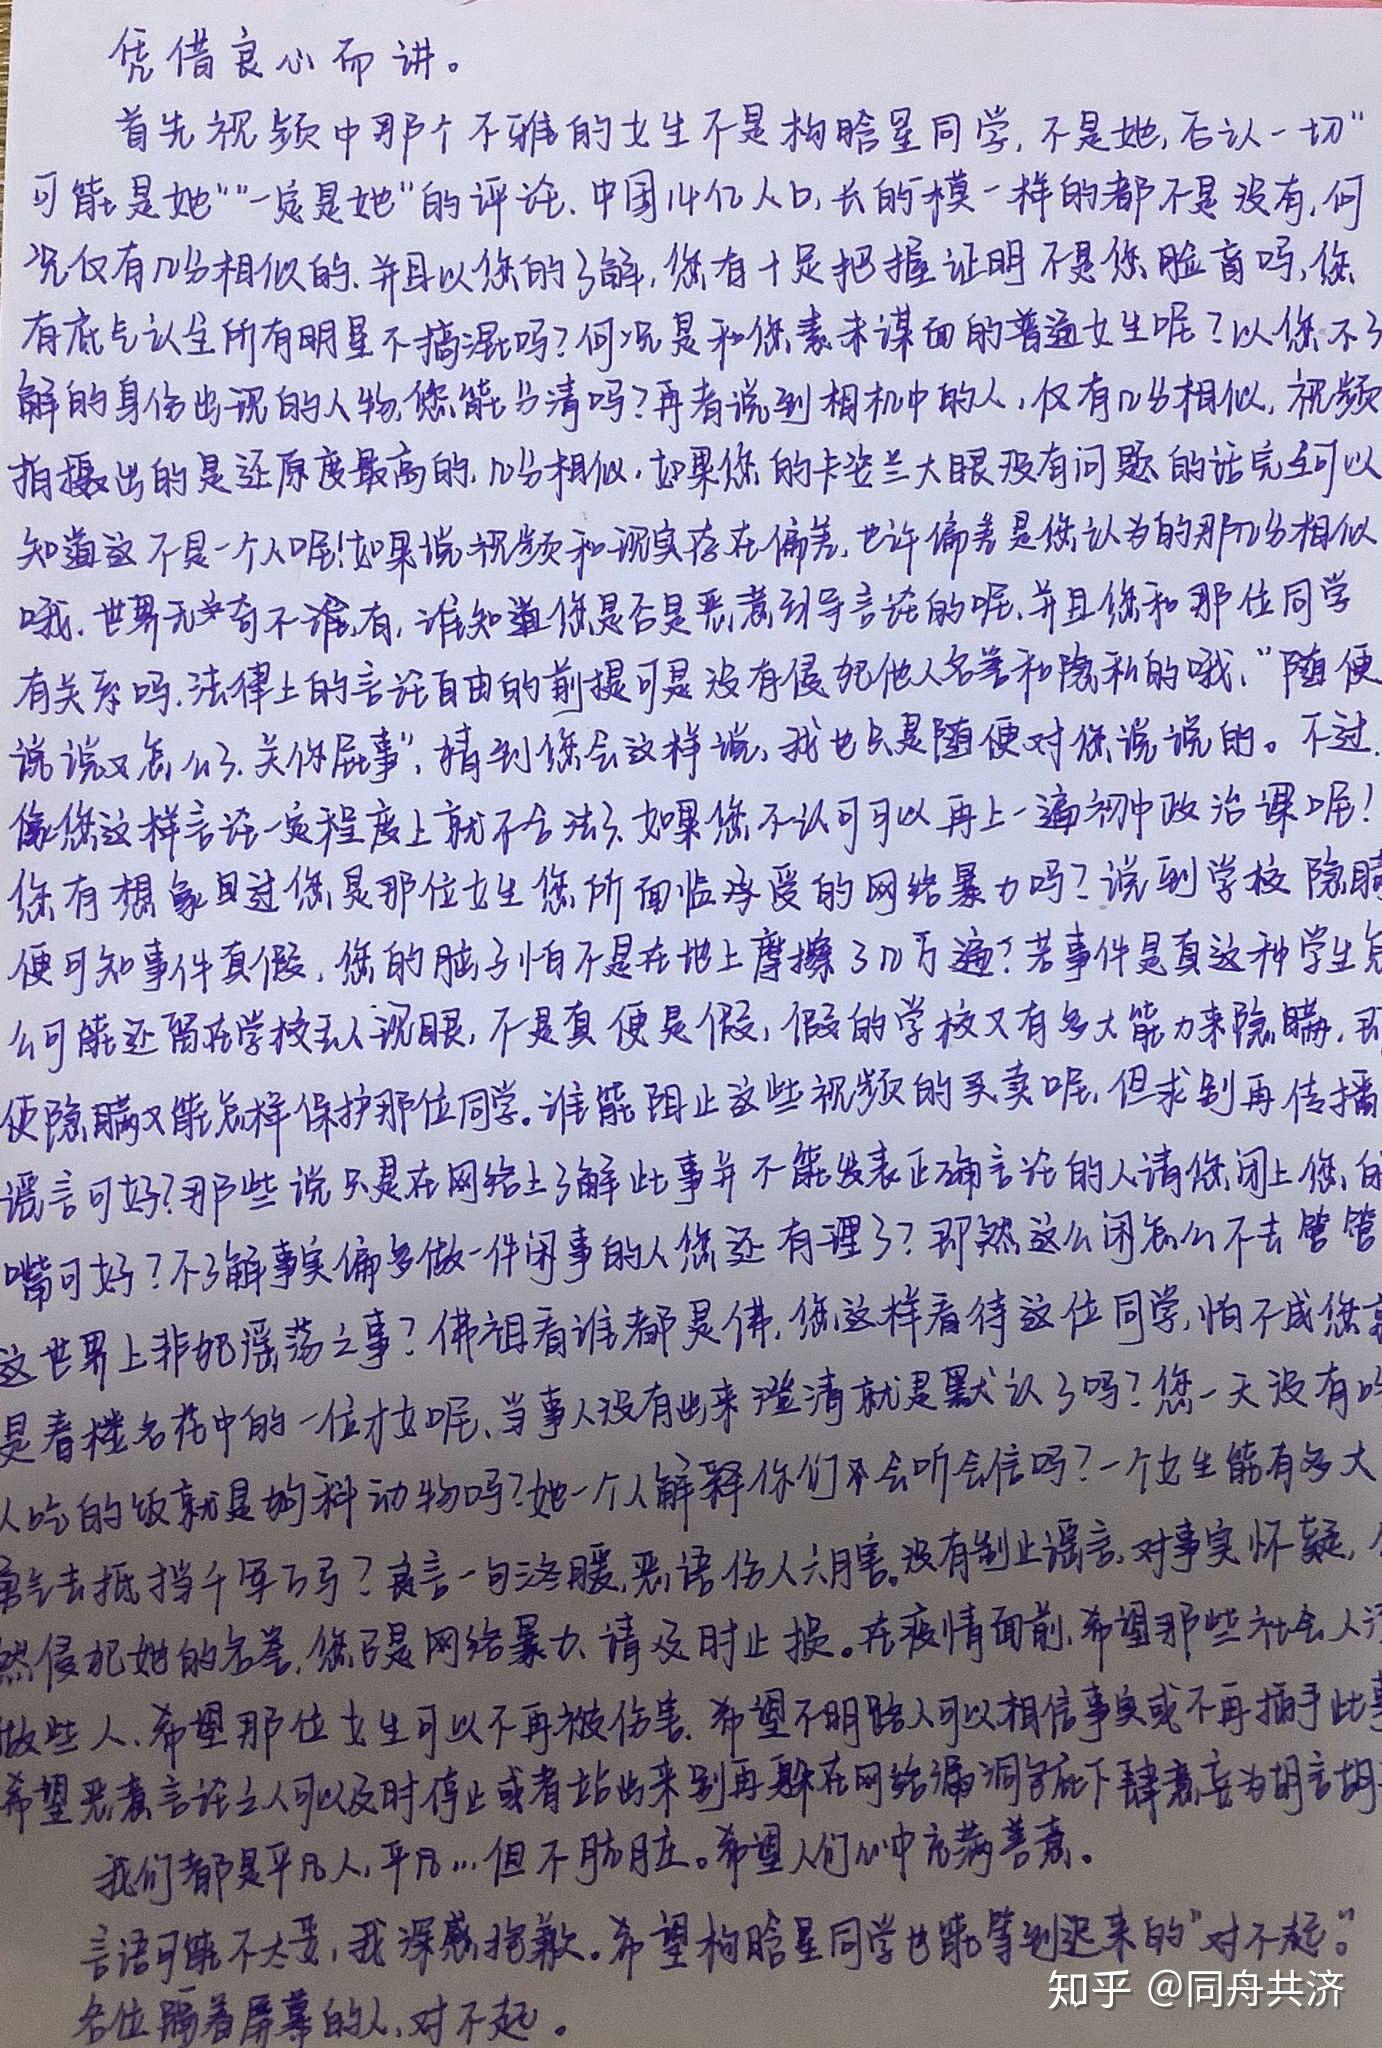 凭借良心而讲。
首先视频中那个不雅的女生不是构晗星同学,不是她,否认一切“
可能是她”“一定是她”的评论、中国14亿人口,长的一模一样的都不是没有,何
况仅有几分相似的、并且以您的了解,您有十足把握证明不是您脸盲吗,您
有底气认全所有明星不搞混吗?何况是和您素未谋面的普通女生呢?以您不了
解的身份出现的人物,您能分清吗?再者说到相机中的人,仅有几分相似,视频
拍摄出的是还原度最高的,几分相似,如果您的卡姿兰大眼没有问题的话完全可以
知道这不是一个人呢!如果说视频和现实存在偏差,也许偏差是您认为的那几分相似
哦、世界无奇不有,谁知道您是否是恶意引导言论的呢、并且您和那位同学
有关系吗、法律上的言论自由的前提可是没有侵犯他人名誉和隐私的哦、“随便
说说又怎么了、关你屁事”,猜到您会这样说,我也只是随便对您说说的。不过,
像您这样言论一定程度上就不合法了、如果您不认可可以再上一遍初中政治课呢!
您有想象过您是那位女生您所面临承受的网络暴力吗?说到学校隐瞒
便可知事件真假,您的脑子怕不是在地上摩擦了几万遍?若事件是真这种学生怎
么可能还留在学校丢人现眼,不是真便是假,假的学校又有多大能力来隐瞒,即
使隐瞒又能怎样保护那位同学。谁能阻止这些视频的买卖呢,但求别再传播
谣言可好?那些说只是在网络上了解此事并不能发表正确言论的人请您闭上您的
嘴可好?不了解事实偏多做一件闲事的人您还有理了?即然这么闲怎么不去管管
这世界上非犯谣荡之事?佛祖看谁都是佛,您这样看待这位同学,怕不成您就
是春楼名花中的一位才女呢、当事人没有出来澄清就是默认了吗?您一天没有吃
人吃的饭就是狗科动物吗?她一个人解释你们不会听会信吗?一个女生能有多大
勇气去抵挡千军万马?良言一句三冬暖,恶语伤人六月寒。没有制止谣言,对事实怀疑,
然侵犯她的名誉,您已是网络暴力、请及时止损。在疫情面前,希望那些社会人渣
做些人、希望那位女生可以不再被伤害、希望不明路人可以相信事实或不再插手此事
希望恶意言论之人可以及时停止或者站出来别再躲在网络漏洞底下肆意妄为胡言胡
我们都是平凡人,平凡…但不肮脏。希望人们心中充满善意。
言语可能不太妥,我深感抱歉。希望构晗星同学也能等到迟来的“对不起”。
各位隔着屏幕的人,对不起。
知乎 @同舟共济